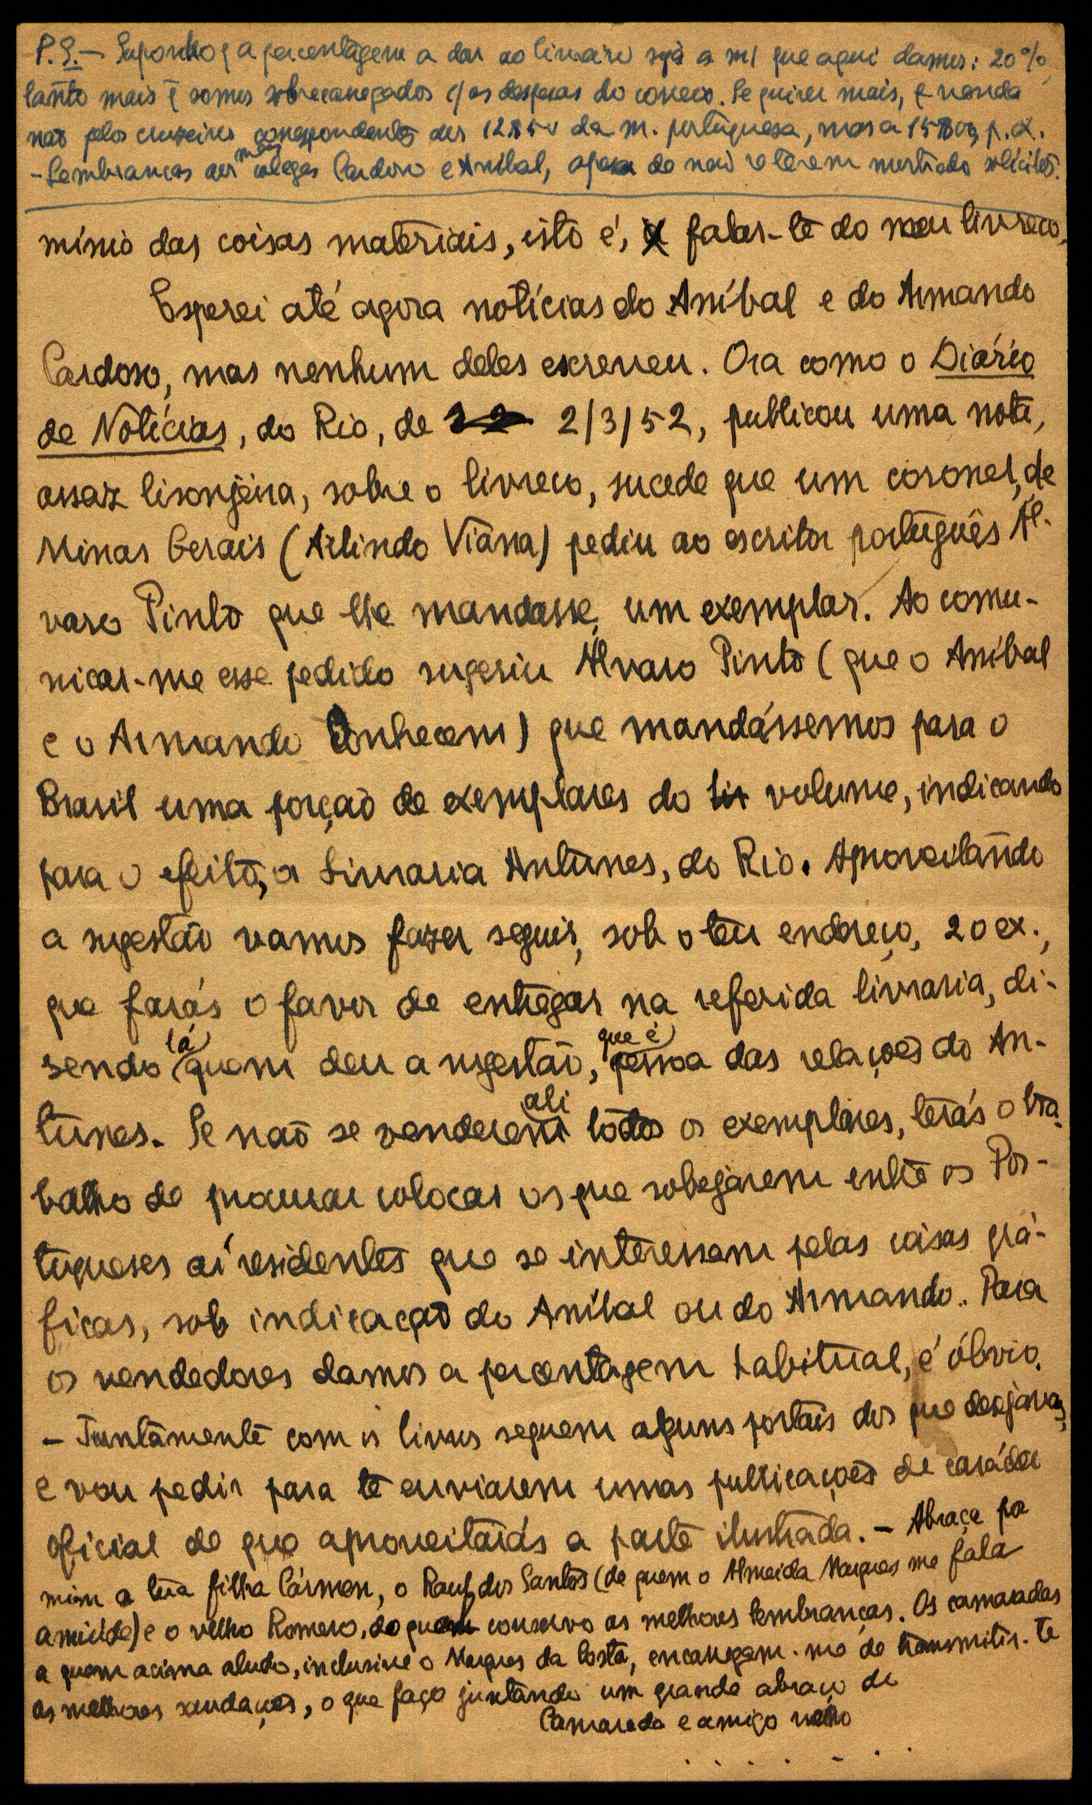 P.S. — Suponho q a percentagem a dar ao livreiro seja a m/ que aqui damos: 20%,
tanto mais q̃ somos sobrecarregados c/ as despesas do correio. Se quiser mais, q̃ venda
não pelos cruzeiros correspondentes aos 12$50 da m. portuguesa, mas a 15$00, p. ex.
- Lembranças aos meus colegas Cardoso e Aníbal, apesar de não se terem mostrado solícitos.
mínio das coisas materiais, isto é, falar-te do meu livreco.
Esperei até agora notícias do Aníbal e do Armando
Cardoso, mas nenhum deles escreveu. Ora como o Diário
de Notícias, do Rio, de 2/3/52, publicou uma nota,
assaz lisonjeira, sobre o livreco, sucede que um coronel, de
Minas Gerais (Arlindo Viana) pediu ao escritor português Ál-
varo Pinto que lhe mandasse um exemplar. Ao comu-
nicar-me esse pedido sugeriu Álvaro Pinto (que o Aníbal
e o Armando conhecem) que mandássemos para o
Brasil uma porção de exemplares do volume, indicando
para o efeito, a Livraria Antunes, do Rio. Aproveitando
a sugestão vamos fazer seguir, sob o teu endereço, 20 ex.,
que farás o favor de entregar na referida livraria, di-
zendo lá quem deu a sugestão, que é pessoa das relações do An-
tunes. Se não se venderem ali todos os exemplares, terás o tra-
balho de procurar colocar os que sobejarem entre os Por-
tugueses aí residentes que se interessam pelas coisas grá-
ficas, sob indicação do Aníbal ou do Armando. Para
os vendedores damos a percentagem habitual, é óbvio.
- Juntamente com os livros seguem alguns postais dos que desejavas,
e vou pedir para te enviarem umas publicações de carácter
oficial de que aproveitarás a parte ilustrada. — Abraça por
mim a tua filha Cármen, o Raul dos Santos (de quem o Almeida Marques me fala
amiúde) e o velho Romero, de quem conservo as melhores lembranças. Os camaradas
a quem acima aludo, inclusive o Marques da Costa, encarregam-me de transmitir-te
as melhores saudações, o que faço juntando um grande abraço de
Camarada e amigo velho
. . . . . . .